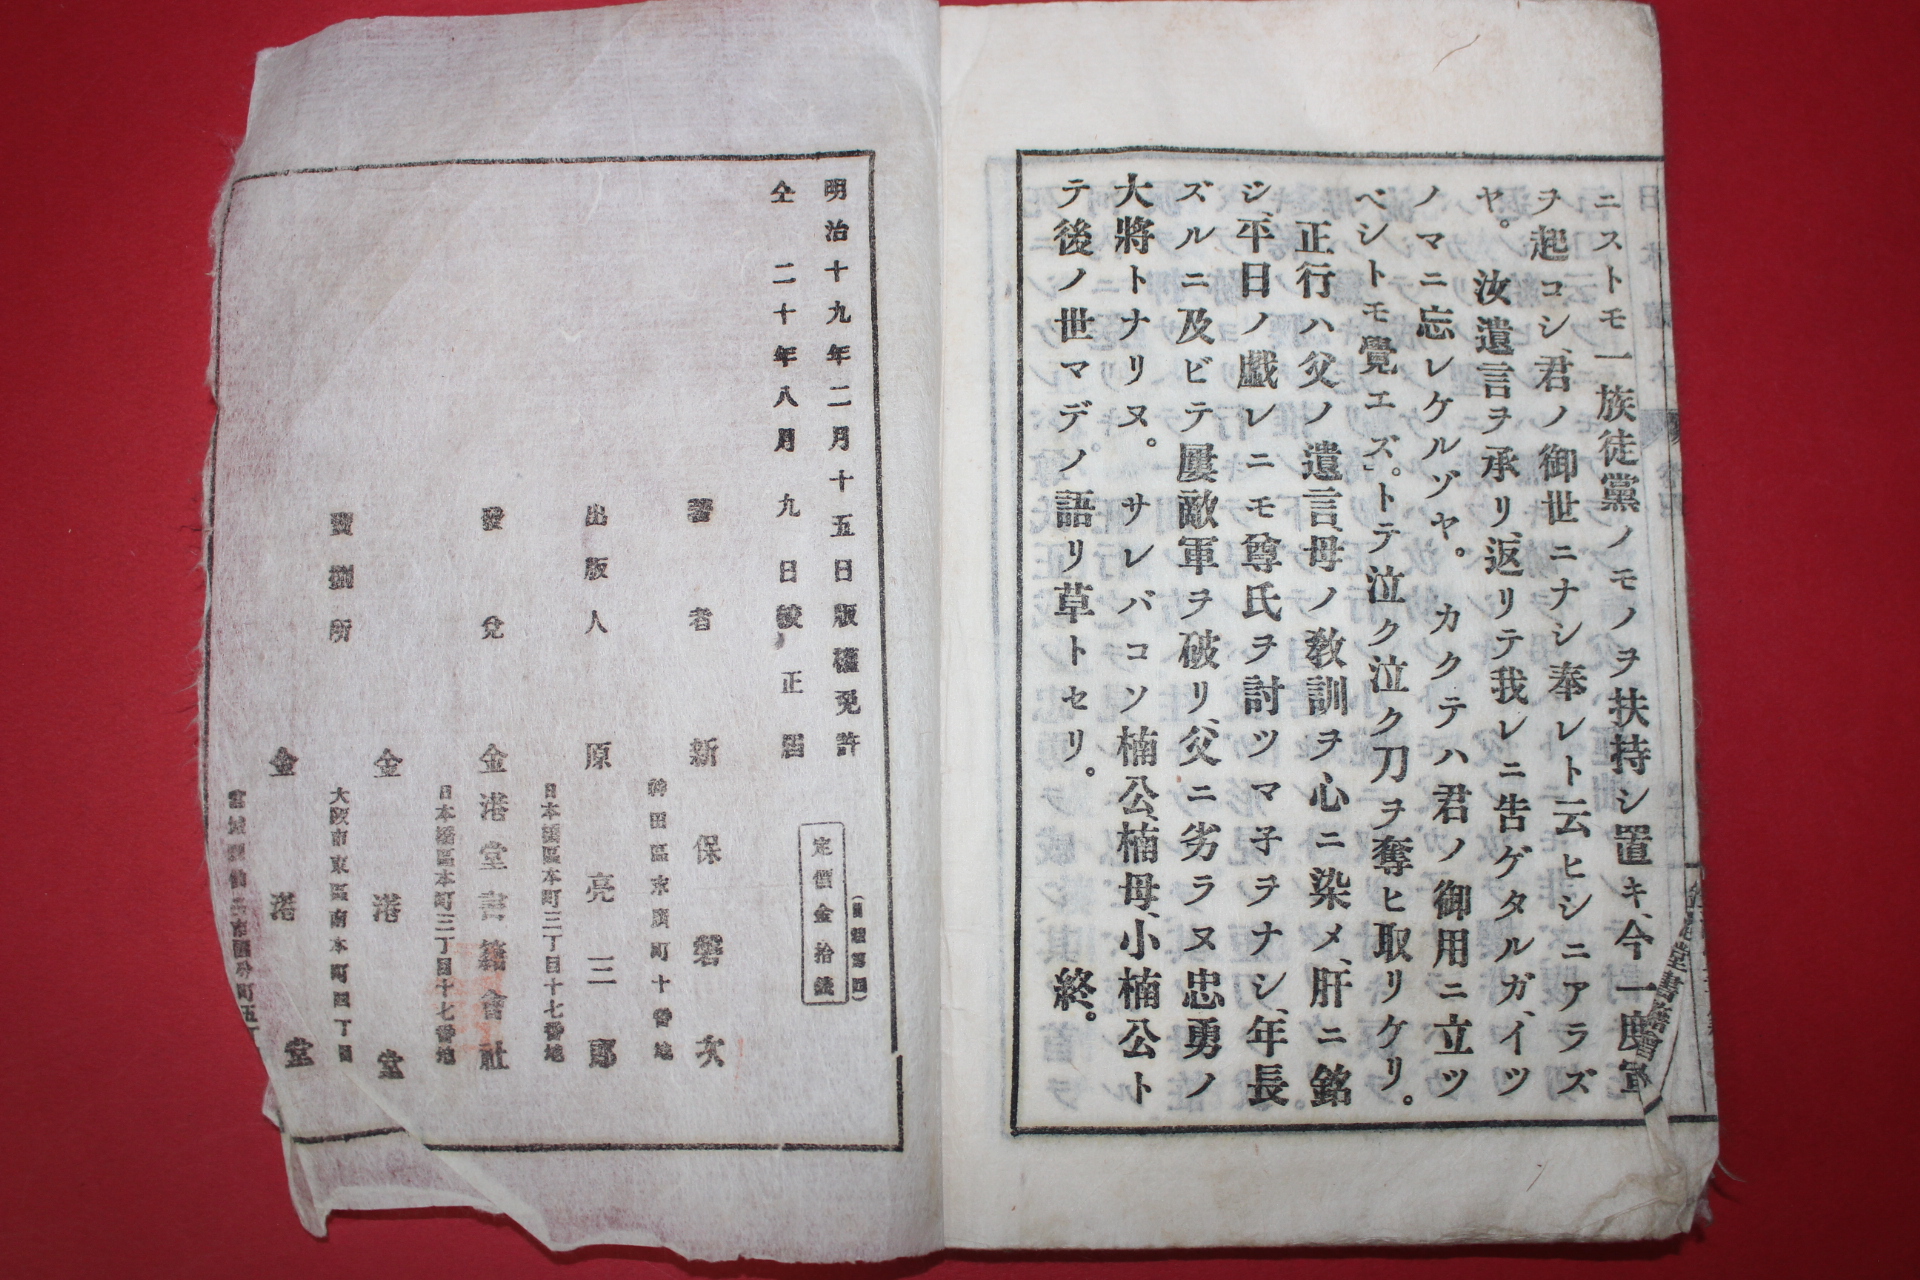 ニストモ一族徒黨ノモノヲ扶持シ置キ、今一度軍
ヲ起コシ、君ノ御世ニナシ奉レト云ヒシニアラズ
ヤ。汝遺言ヲ承リ、返リテ我レニ告ゲタルガ、イツ
ノマニ忘レケルゾヤ。カクテハ君ノ御用ニ立ツ
ベシトモ覺エズ。トテ泣ク泣ク刀ヲ奪ヒ取リケリ。
正行ハ父ノ遺言、母ノ敎訓ヲ心ニ染メ、肝ニ銘
シ、平日ノ戯レニモ尊氏ヲ討ツマ子ヲナシ、年長
ズルニ及ビテ屢敵軍ヲ破リ、父ニ劣ラヌ忠勇ノ
大將トナリヌ。サレバコソ楠公、楠母、小楠公ト
テ後ノ世マデノ語リ草トセリ。終。
明治十九年二月十五日版權免許
仝二十年八月九日校正屆
定價金拾錢
著者 新保磐次
神田區末廣町十番地
出版人 原亮三郎
日本橋區本町三丁目十七番地
發兌 金港堂書籍會社
日本橋區本町三丁目十七番地
賣捌所 金港堂
大阪市東區南本町四丁目
金港堂